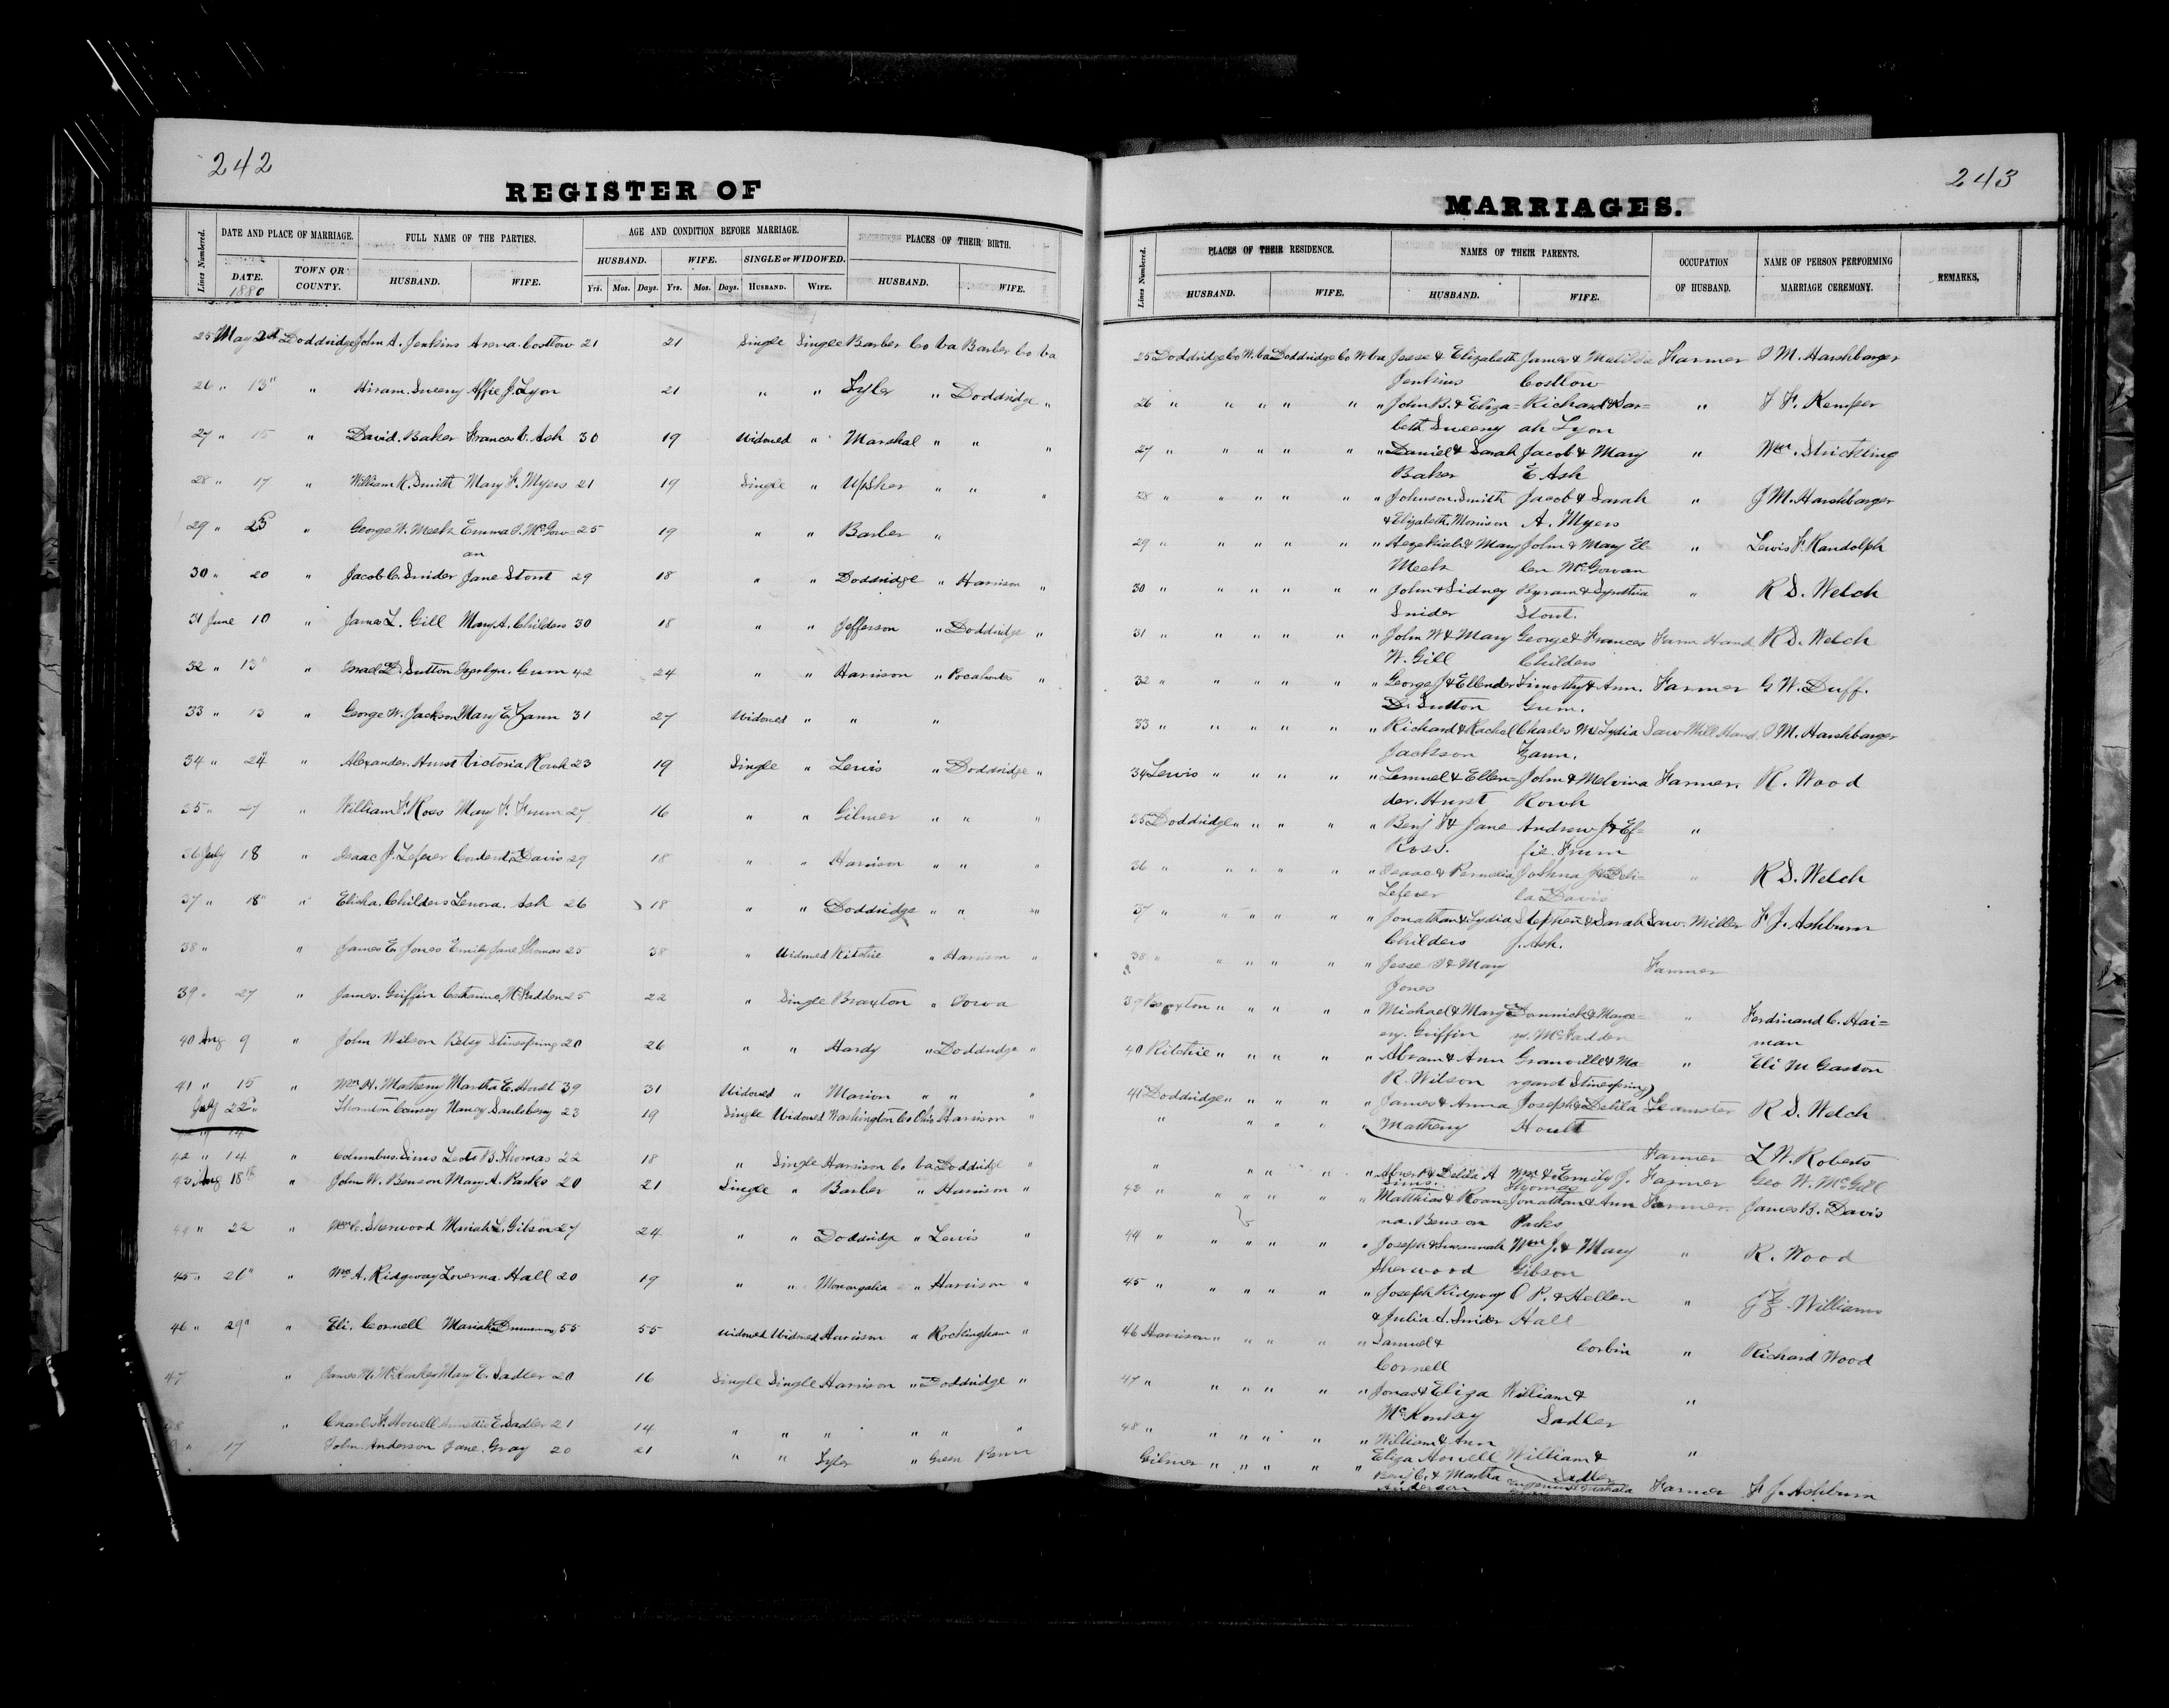 242
REGISTER OF
Lines Numbered.
DATE AND PLACE OF MARRIAGE.
FULL NAME OF THE PARTIES.
AGE AND CONDITION BEFORE MARRIAGE.
PLACES OF THEIR BIRTH.
DATE. 1880
TOWN OR COUNTY.
HUSBAND.
WIFE.
HUSBAND.
WIFE.
SINGLE or WIDOWED.
HUSBAND.
WIFE.
Yrs. Mos. Days. Yrs. Mos. Days. HUSBAND. WIFE.
25 May 2d Doddridge John A. Jenkins Arena Costlow 21 21 Single Single Barber Co Va Barber Co Va
26 " 13" " Hiram Sweeny Affie J. Lyon 21 " " Tyler " Doddridge "
27 " 15 " David Baker Frances C. Ash 30 19 Widowed " Marshal " " "
28 " 17 " William K. Smith Mary F. Myers 21 19 Single " Upsher " " "
29 " 23 " George W. Meek Emma J. McGow= 25 19 " " Barber "
an
30 " 20 " Jacob C. Snider Jane Stout 29 18 " " Doddridge " Harrison "
31 June 10 " James L. Gill Mary A. Childers 30 18 " " Jefferson " Doddridge "
32 " 13" " Israel D. Sutton Gum 42 24 " " Harrison " Pocahontas "
33 " 13 " George W. Jackson Mary E. Zann 31 27 Widowed " " "
34 " 24" " Alexander Hurst Victoria Rowh 23 19 Single " Lewis " Doddridge "
35 " 27 " William F. Ross Mary F. Frum 27 16 " " Gilmer " " "
36 July 18 " Isaac J. Lefever Content Davis 29 18 " " Harrison " " "
37 " 18" " Elisha Childers Lenora Ash 26 18 " " Doddridge " " "
38 " " James E. Jones Emily Jane Thomas 25 38 " Widowed Ritchie " Harrison "
39 " 27 " James Griffin Catharine McFadden 25 22 " Single Braxton " Iowa
40 Aug 9 " John Wilson Betsy Stinespring 20 26 " " Hardy " Doddridge "
41 " 15 " Wm H. Matheny Martha E. Hoult 39 31 Widowed " Marion " " "
July 22" Thornton Causey Nancy Saulsbery 23 19 Single Widowed Washington Co Ohio Harrison "
42 " 14 " Columbus Sims Leoti B. Thomas 22 18 " Single Harrison Co Va Doddridge "
43 Aug 18th " John W. Benson Mary A. Parks 20 21 Single " Barber " Harrison "
44 " 22 " Wm C. Sherwood Mariah L. Gibson 27 24 " " Doddridge " Lewis "
45 " 26" " Wm A. Ridgway Loverna Hall 20 19 " " Monongalia " Harrison "
46 " 29" " Eli Cornell Mariah 55 55 Widowed Widowed Harrison " Rockingham "
47 " James M. McKinley Mary E. Sadler 20 16 Single Single Harrison " Doddridge "
48 " Charles F. Howell E. Sadler 21 14 " " " " " "
" 17 John Anderson Jane Gray 20 21 " " Tyler " Green
243
MARRIAGES.
Lines Numbered.
PLACES OF THEIR RESIDENCE.
NAMES OF THEIR PARENTS.
OCCUPATION OF HUSBAND.
NAME OF PERSON PERFORMING MARRIAGE CEREMONY.
REMARKS,
HUSBAND.
WIFE.
HUSBAND.
WIFE.
25 Doddridge Co W. Va Doddridge Co W Va Jesse & Elizabeth James & Matilda Farmer J M. Harshbarger
Jenkins Costlow
26 " " " " " " John B. & Eliza= Richard & Sar= " J F. Kemper
beth Sweeny ah Lyon
27 " " " " " " Daniel & Sarah Jacob & Mary " Wm. Strickling
Baker E Ash
28 " " " " " " Johnson Smith Jacob & Sarah " J M. Harshbarger
& Elizabeth Morrison A. Myers
29 " " " " " " Hezekiah & Mary John & Mary El= " Lewis F. Randolph
Meek len McGowan
30 " " " " " " John & Sidney Byram & Synthia " R S. Welch
Snider Stout.
31 " " " " " " John W & Mary George & Frances Farm Hand R S. Welch
W. Gill Childers
32 " " " " " " George J & Ellender Timothy & Ann. Farmer G W. Duff.
D. Sutton Gum.
33 " " " " " " Richard & Rachel Charles W & Lydia Saw Mill Hand. J M. Harshbarger
Jackson Zann.
34 Lewis " " " " " Lemuel & Ellen= John & Melvina Farmer. R. Wood
der. Hurst Rowh
35 Doddridge " " " " " Benj F & Jane Andrew J & Ef= "
Ross. fie. Frum
36 " " " " " " Isaac & Permelia Joshua J & Deli= " R S. Welch
Lefever la Davis
37 " " " " " " Jonathan & Lydia Stephen & Sarah Saw. Miller F J. Ashburn
Childers J. Ash.
38 " " " " " " Jesse J & Mary Farmer
Jones
39 Braxton " " " " " Michael & Marg= Dominick & Marge= " Ferdinand C. Hai=
ery. Griffin ry. McFadden man
40 Ritchie " " " " " Abram & Ann Granville & Ma= " Eli M Gaston
R. Wilson rgaret Stinespring
41 Doddridge " " " " " James & Anna Joseph & Delila Teamster R S. Welch
" " " " " Matheny Hoult
Farmer L W. Roberts
" " " " " Abner & Delila A Wm & Emily J. Farmer Geo W. McGill
Sims. Thomas
43 " " " " " " Matthias & Roan= Jonathan & Ann Farmer. James B. Davis
na. Benson Parks
44 " " " " " " Joseph & Susannah Wm J. & Mary " R. Wood
Sherwood Gibson
45 " " " " " " Joseph Ridgway O P. & Hellen " Williams
& Julia A. Snider Hall
46 Harrison " " " " " Samuel & Corbin " Richard Wood
Cornell
47 " " " " " " Jonas & Eliza William & "
McKinley Sadler
48 " " " " " " William & Ann
Eliza Howell William & "
Sadler
Gilmer " " " " " Benj C. & Martha Farmer F J. Ashburn
Anderson